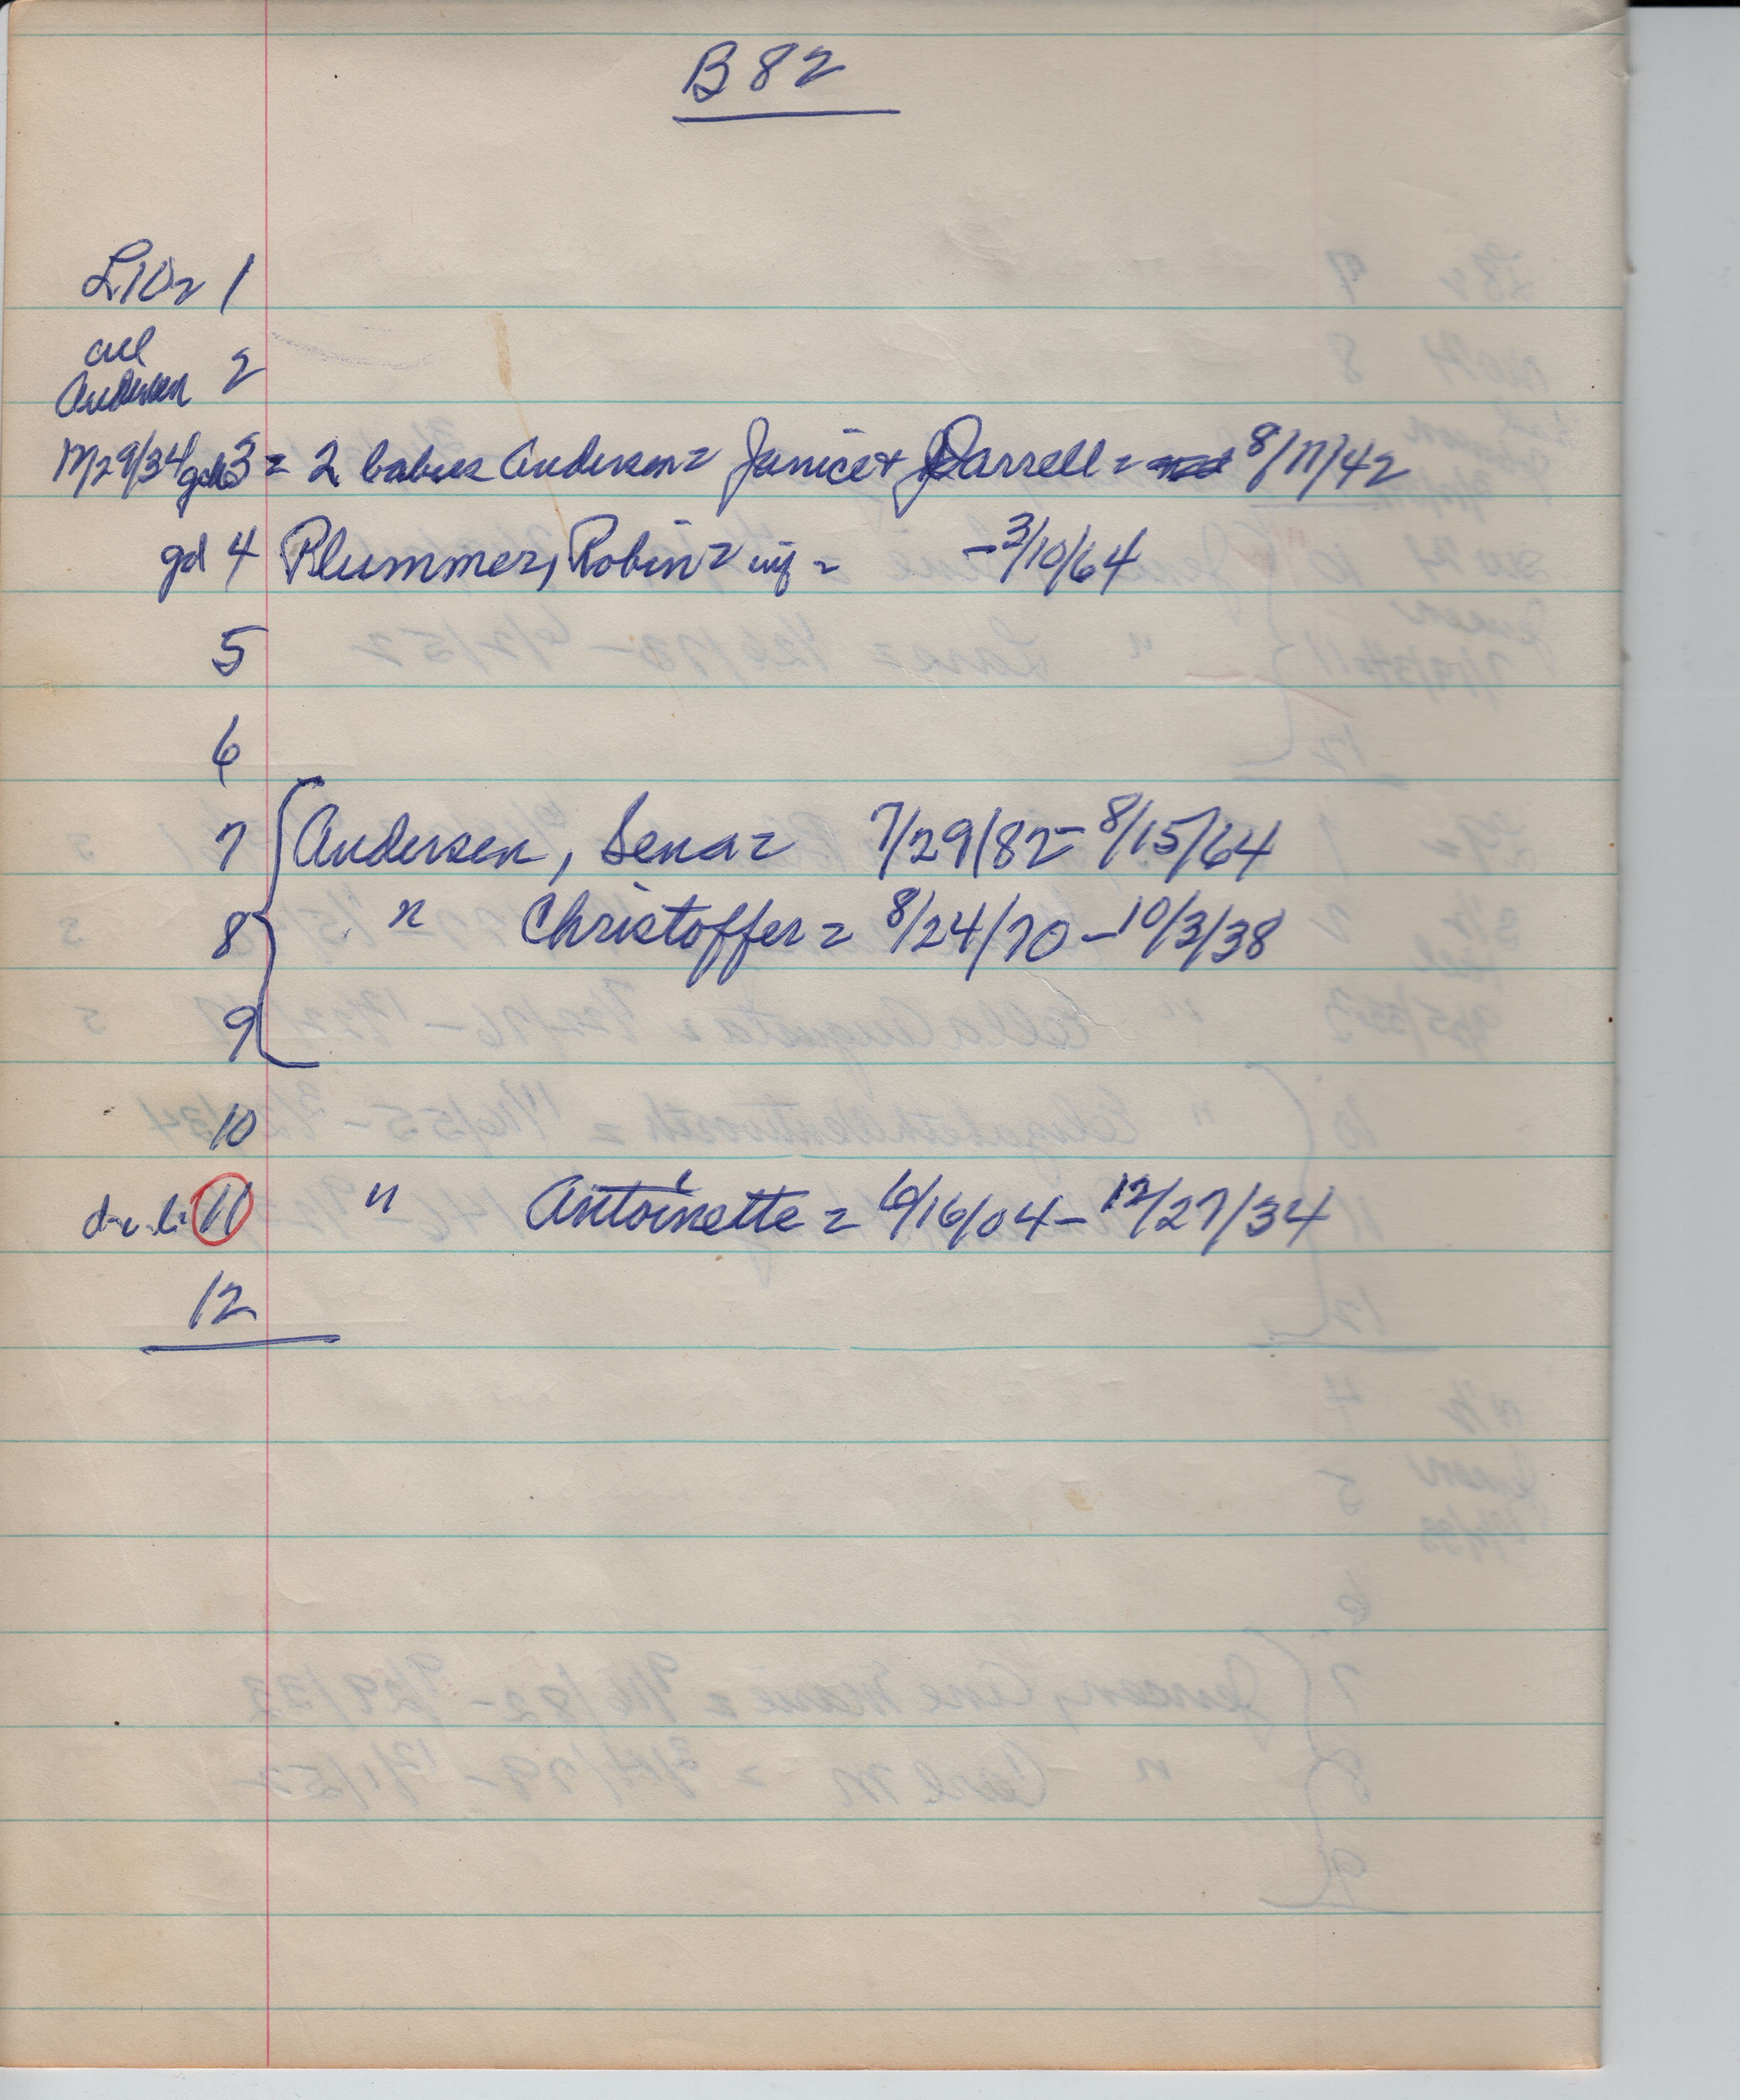 B 82
L102 1
all
Andersen 2
3 = 2 babies Andersen = Janice + Darrell = 8/17/42
gd 4 Plummer, Robin = inf = - 3/10/64
5
6
7 Andersen, Sena = 7/29/82 - 8/15/64
8 " Christoffer = 8/24/70 - 10/3/38
9
10
11 " Antoinette = 6/16/04 - 12/27/34
12